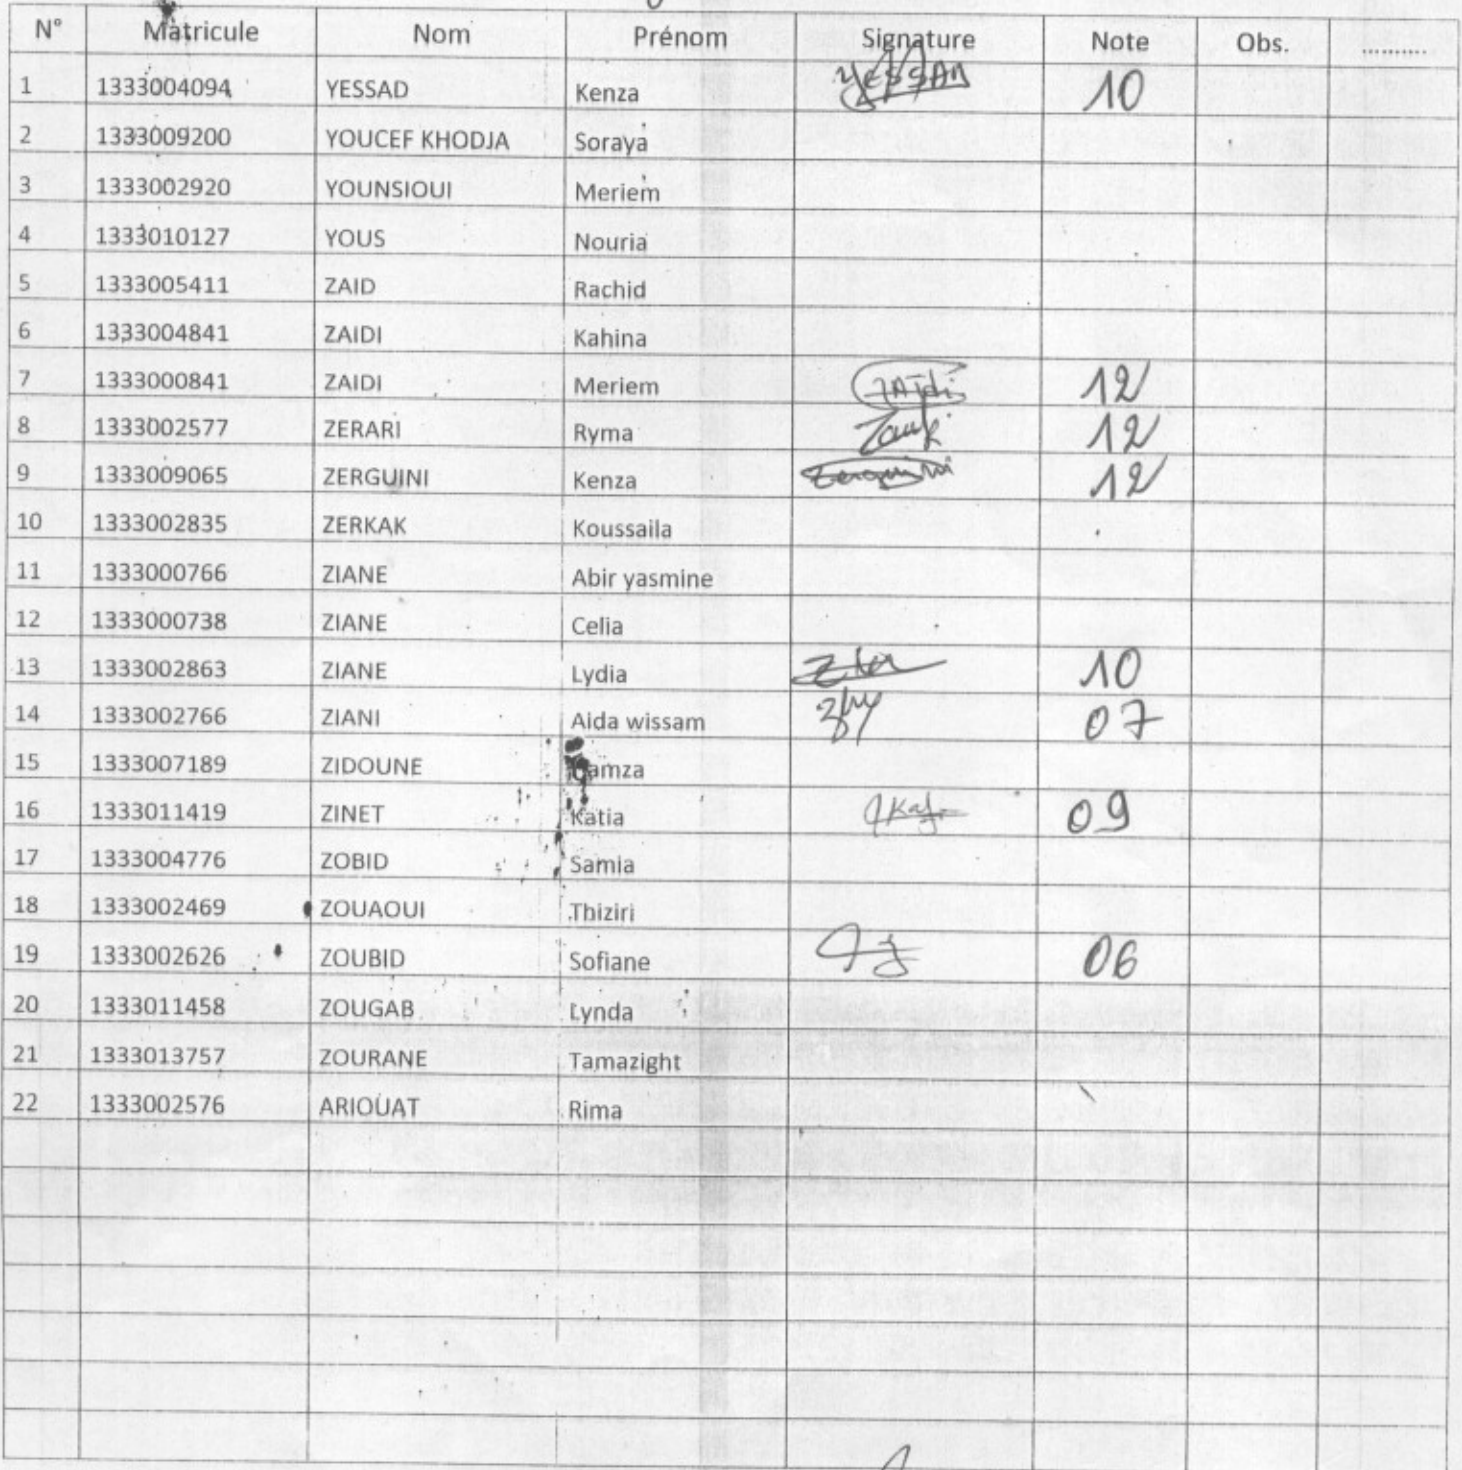 N° Matricule Nom Prénom Signature Note Obs. ...........
1 1333004094 YESSAD Kenza YESSAD 10
2 1333009200 YOUCEF KHODJA Soraya
3 1333002920 YOUNSIOUI Meriem
4 1333010127 YOUS Nouria
5 1333005411 ZAID Rachid
6 1333004841 ZAIDI Kahina
7 1333000841 ZAIDI Meriem ZAidi 12
8 1333002577 ZERARI Ryma 12
9 1333009065 ZERGUINI Kenza Zerguini 12
10 1333002835 ZERKAK Koussaila
11 1333000766 ZIANE Abir yasmine
12 1333000738 ZIANE Celia
13 1333002863 ZIANE Lydia 10
14 1333002766 ZIANI Aida wissam 07
15 1333007189 ZIDOUNE
16 1333011419 ZINET Katia 09
17 1333004776 ZOBID Samia
18 1333002469 ZOUAOUI Thiziri
19 1333002626 ZOUBID Sofiane 06
20 1333011458 ZOUGAB Lynda
21 1333013757 ZOURANE Tamazight
22 1333002576 ARIOUAT Rima